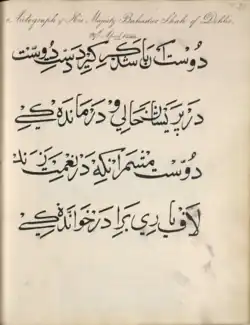 Autograph of His Majesty Bahadur Shah of Dehlie
April
دوست آن باشد که گیرد دست دوست
در پریشان حالی و درمانده کی
دوست مشمار آنکه در نعمت زند
لاف یاری برادر خوانده کی